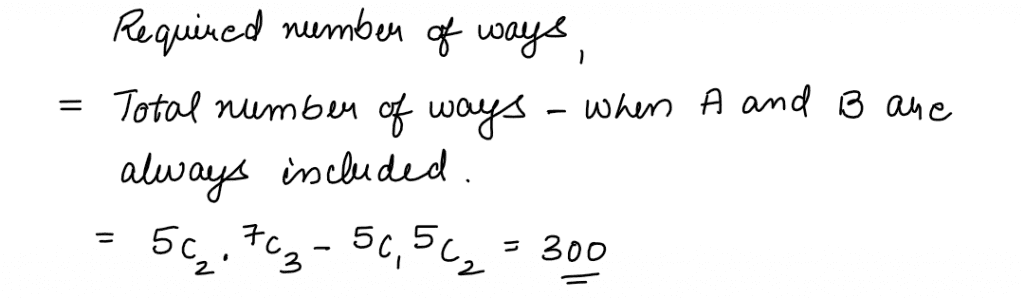 Required number of ways,
= Total number of ways - when A and B are
always included.
= 5C₂. ⁷C₃ - 5C₁ 5C₂ = 300